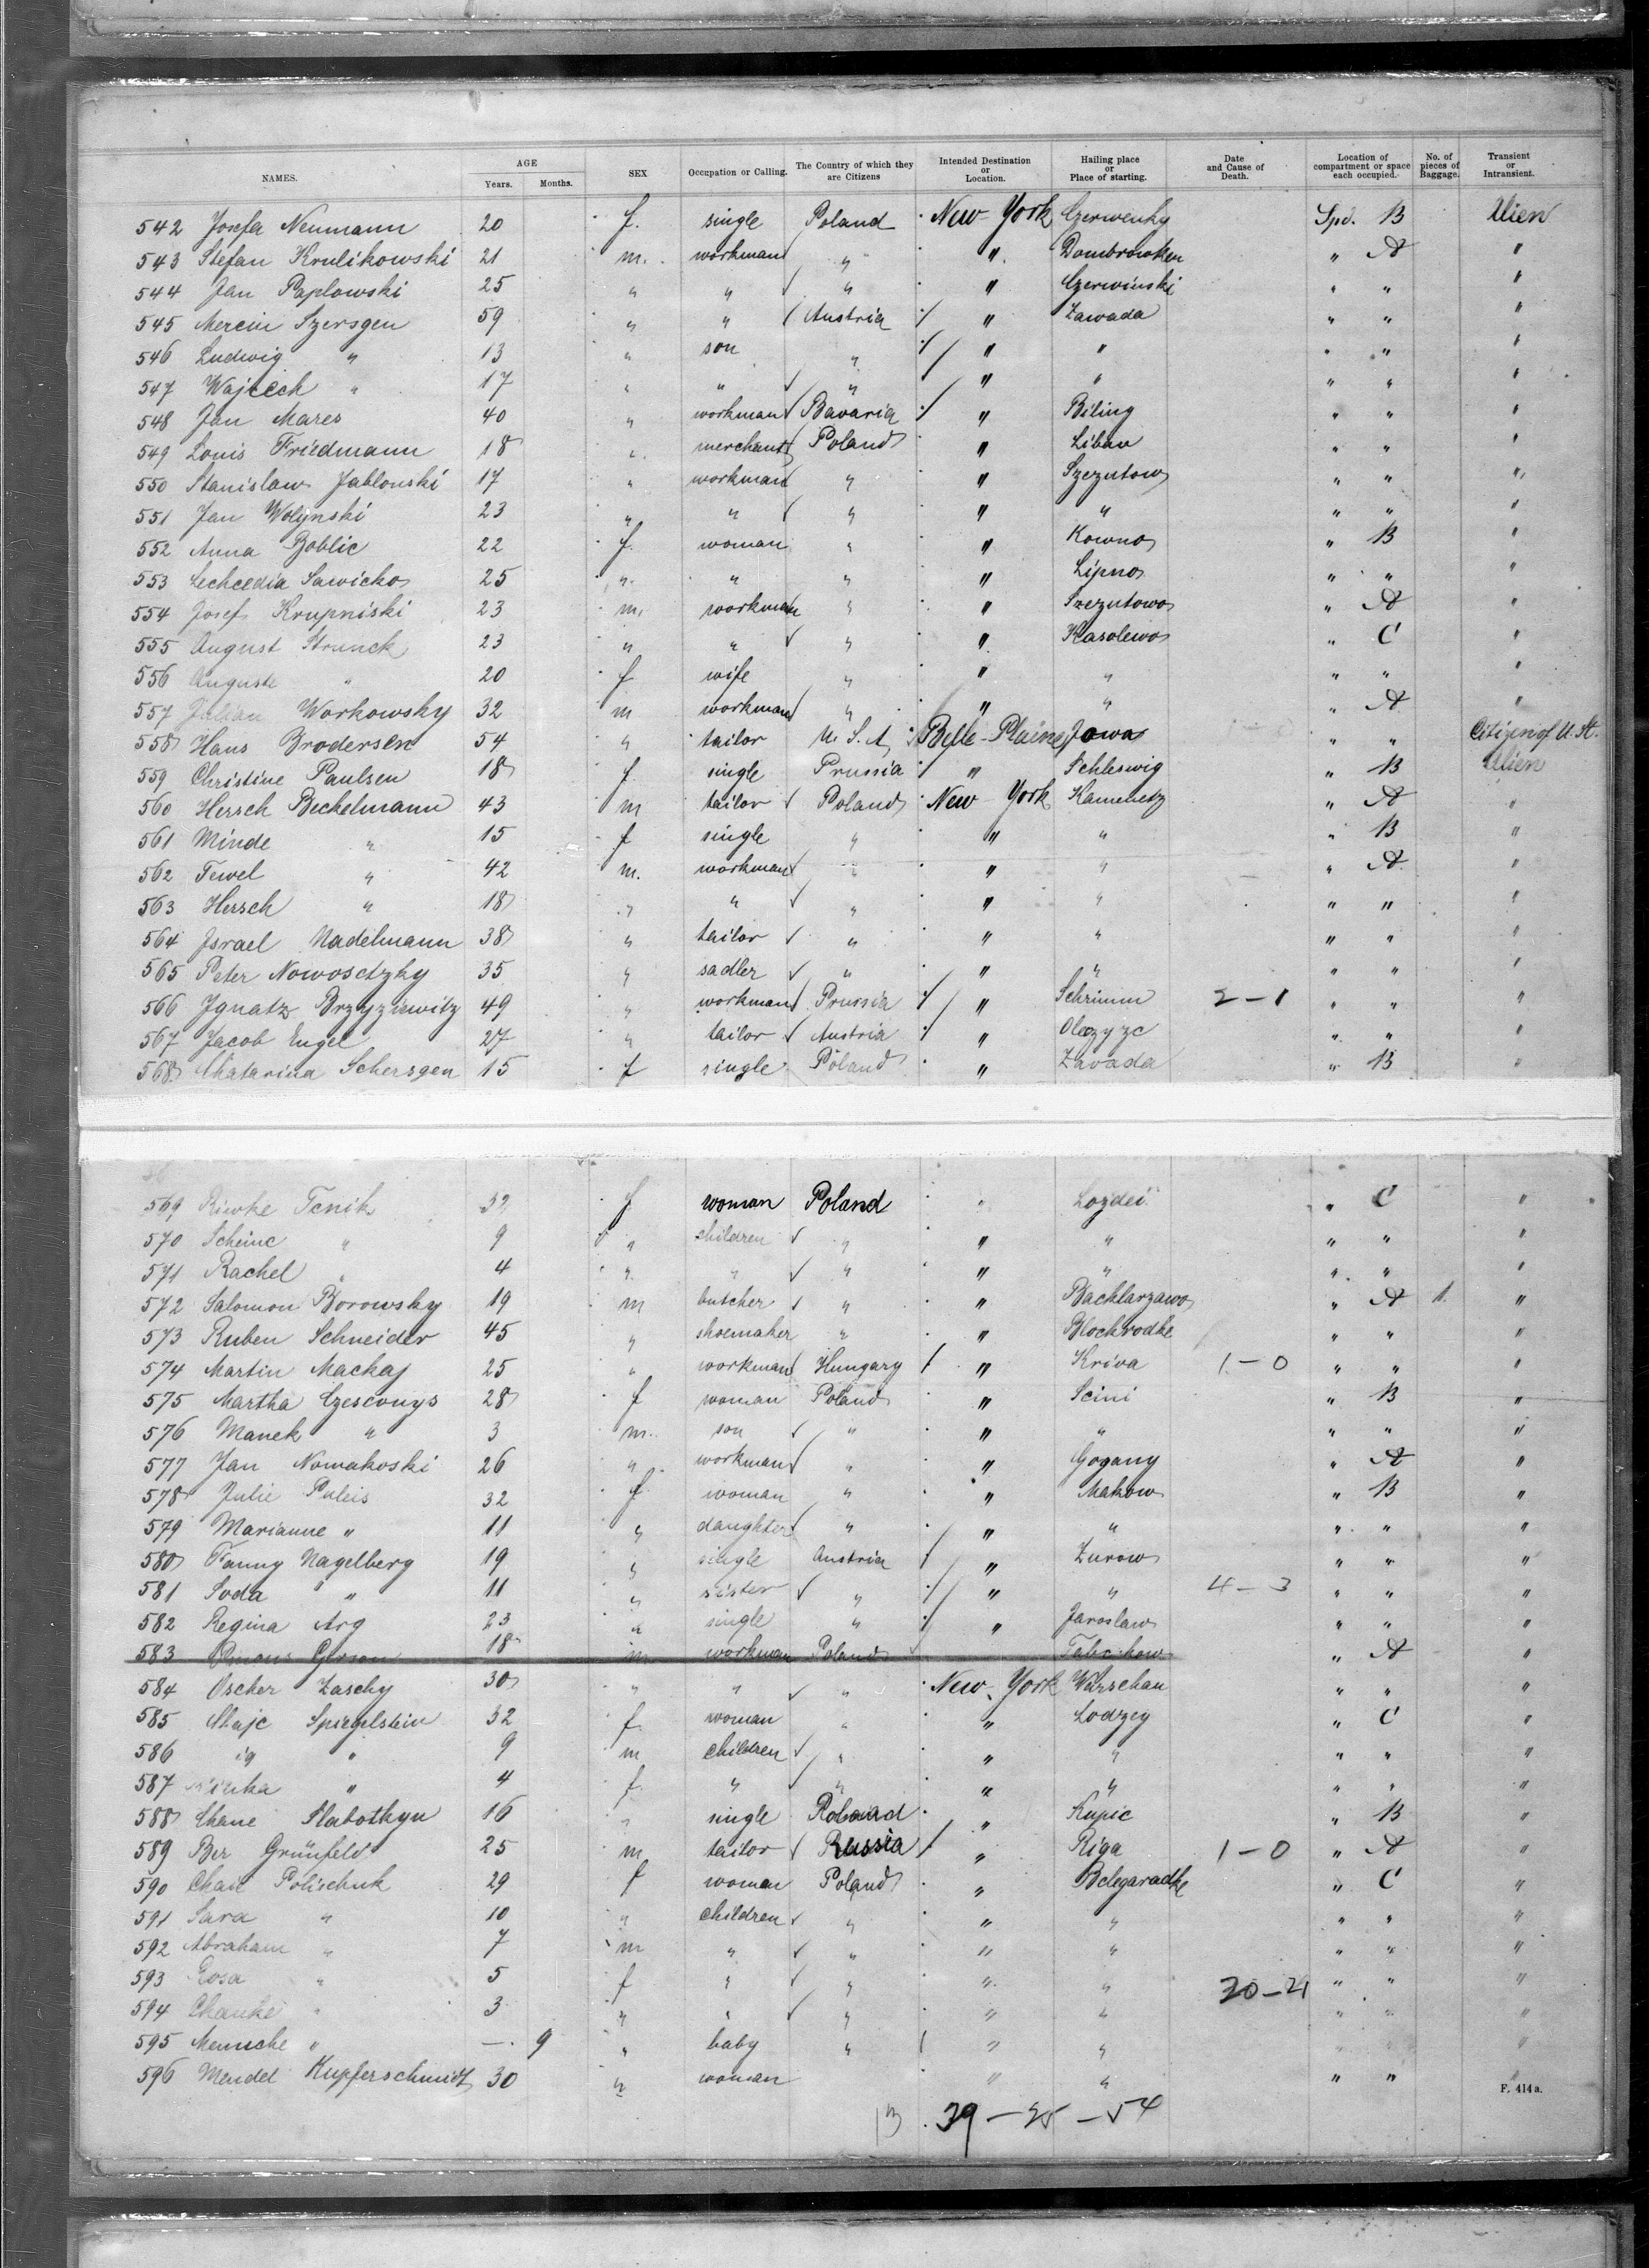 NAMES. AGE Years. Months. SEX Occupation or Calling. The Country of which they are Citizens Intended Destination or Location. Hailing place or Place of starting. Date and Cause of Death. Location of compartment or space each occupied. No. of pieces of Baggage. Transient or Intransient.
542 Josefa Neumann 20 f. single Poland New-York Czerwenky Spd. B Alien
543 Stefan Krulikowski 21 m. workman " " Dombrowken " A "
544 Jan Paplowski 25 " " " " Czerwinski " " "
545 Mercin Szersgen 59 " " Austria " Zawada " " "
546 Ludwig " 13 " son " " " " " "
547 Wojcech " 17 " " " " " " " "
548 Jan Mares 40 " workman Bavaria " Biling " " "
549 Louis Friedmann 18 " merchant Poland " Libau " " "
550 Stanislaw Jablonski 17 " workman " " Szezutow " " "
551 Jan Wolynski 23 " " " " " " " "
552 Anna Boblic 22 f. woman " " Kowno " B "
553 Sawicka 25 " " " " Lipno " " "
554 Josef Krupniski 23 m. workman " " Szezutowo " A "
555 August Strunck 23 " " " " Kasolewo " C "
556 Auguste " 20 f wife " " " " " "
557 Julian Workowsky 32 m workman " " " " A "
558 Hans Brodersen 54 " tailor U.S.A. Belle-Plaine Jowa " " Citizen of U. St.
559 Christine Paulsen 18 f. single Prussia " Schleswig " B Alien
560 Hersch Bechelmann 43 m tailor Poland New-York Kamenetz " A "
561 Minde " 15 f single " " " " B "
562 Tewel " 42 m. workman " " " " A "
563 Hersch " 18 " " " " " " " "
564 Jsrael Nadelmann 38 " tailor " " " " " "
565 Peter Nowosetzky 35 " sadler " " " " " "
566 Jgnatz Brzyzkewitz 49 " workman Prussia " Schrimm 2-1 " " "
567 Jacob Engel 27 " tailor Austria " Olezyzc " " "
568 Chatarina Schersgen 15 f single Poland " Zavada " B "
569 Riwke Tenik 32 f woman Poland " Lozdei " C "
570 Scheine " 9 " children " " " " " "
571 Rachel " 4 " " " " " " " "
572 Salomon Borowsky 19 m butcher " " Bachlarzawo " A 1. "
573 Ruben Schneider 45 " shoemaker " " Blochrodke " " "
574 Martin Mackaj 25 " workman Hungary " Kriva 1-0 " " "
575 Martha Czesconys 28 f woman Poland " Scini " B "
576 Manek " 3 m. son " " " " " "
577 Jan Nowakoski 26 " workman " " Gogany " A "
578 Julie Puleis 32 f. woman " " Makow " B "
579 Marianne " 11 " daughter " " " " " "
580 Fanny Nagelberg 19 " single Austria " Zurow " " "
581 Soda " 11 " sister " " " 4-3 " " "
582 Regina Arg 23 " single " " Jaroslaw " " "
583 Gerson 18 m workman Poland " A "
584 Oscher Zaschy 30 " " " New-York Warschau " " "
585 Spiegelstein 32 f. woman " " Lodzey " C "
586 " 9 m children " " " " " "
587 " 4 f. " " " " " " "
588 Chane Slabotkyn 16 " single Poland " Kupic " B "
589 Ber Grünfeld 25 m tailor Russia " Riga 1-0 " A "
590 Chaie Polischuk 29 f woman Poland " Belegaradke " C "
591 Sara " 10 " children " " " " " "
592 Abraham " 7 m " " " " " " "
593 Rosa " 5 f " " " " 20-21 " " "
594 Chanke " 3 " " " " " " " "
595 Menusche " — 9 " baby " " " " " "
596 Mendel Kupferschmidt 30 " woman " " " " "
F. 414 a.
13 39-25-54